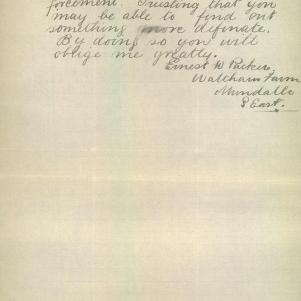 forcement. Trusting that you
may be able to find out
something more definate.
By doing so you will
oblige me greatly.
Ernest W Parker,
Waltham Farm
Mundalla
S East.